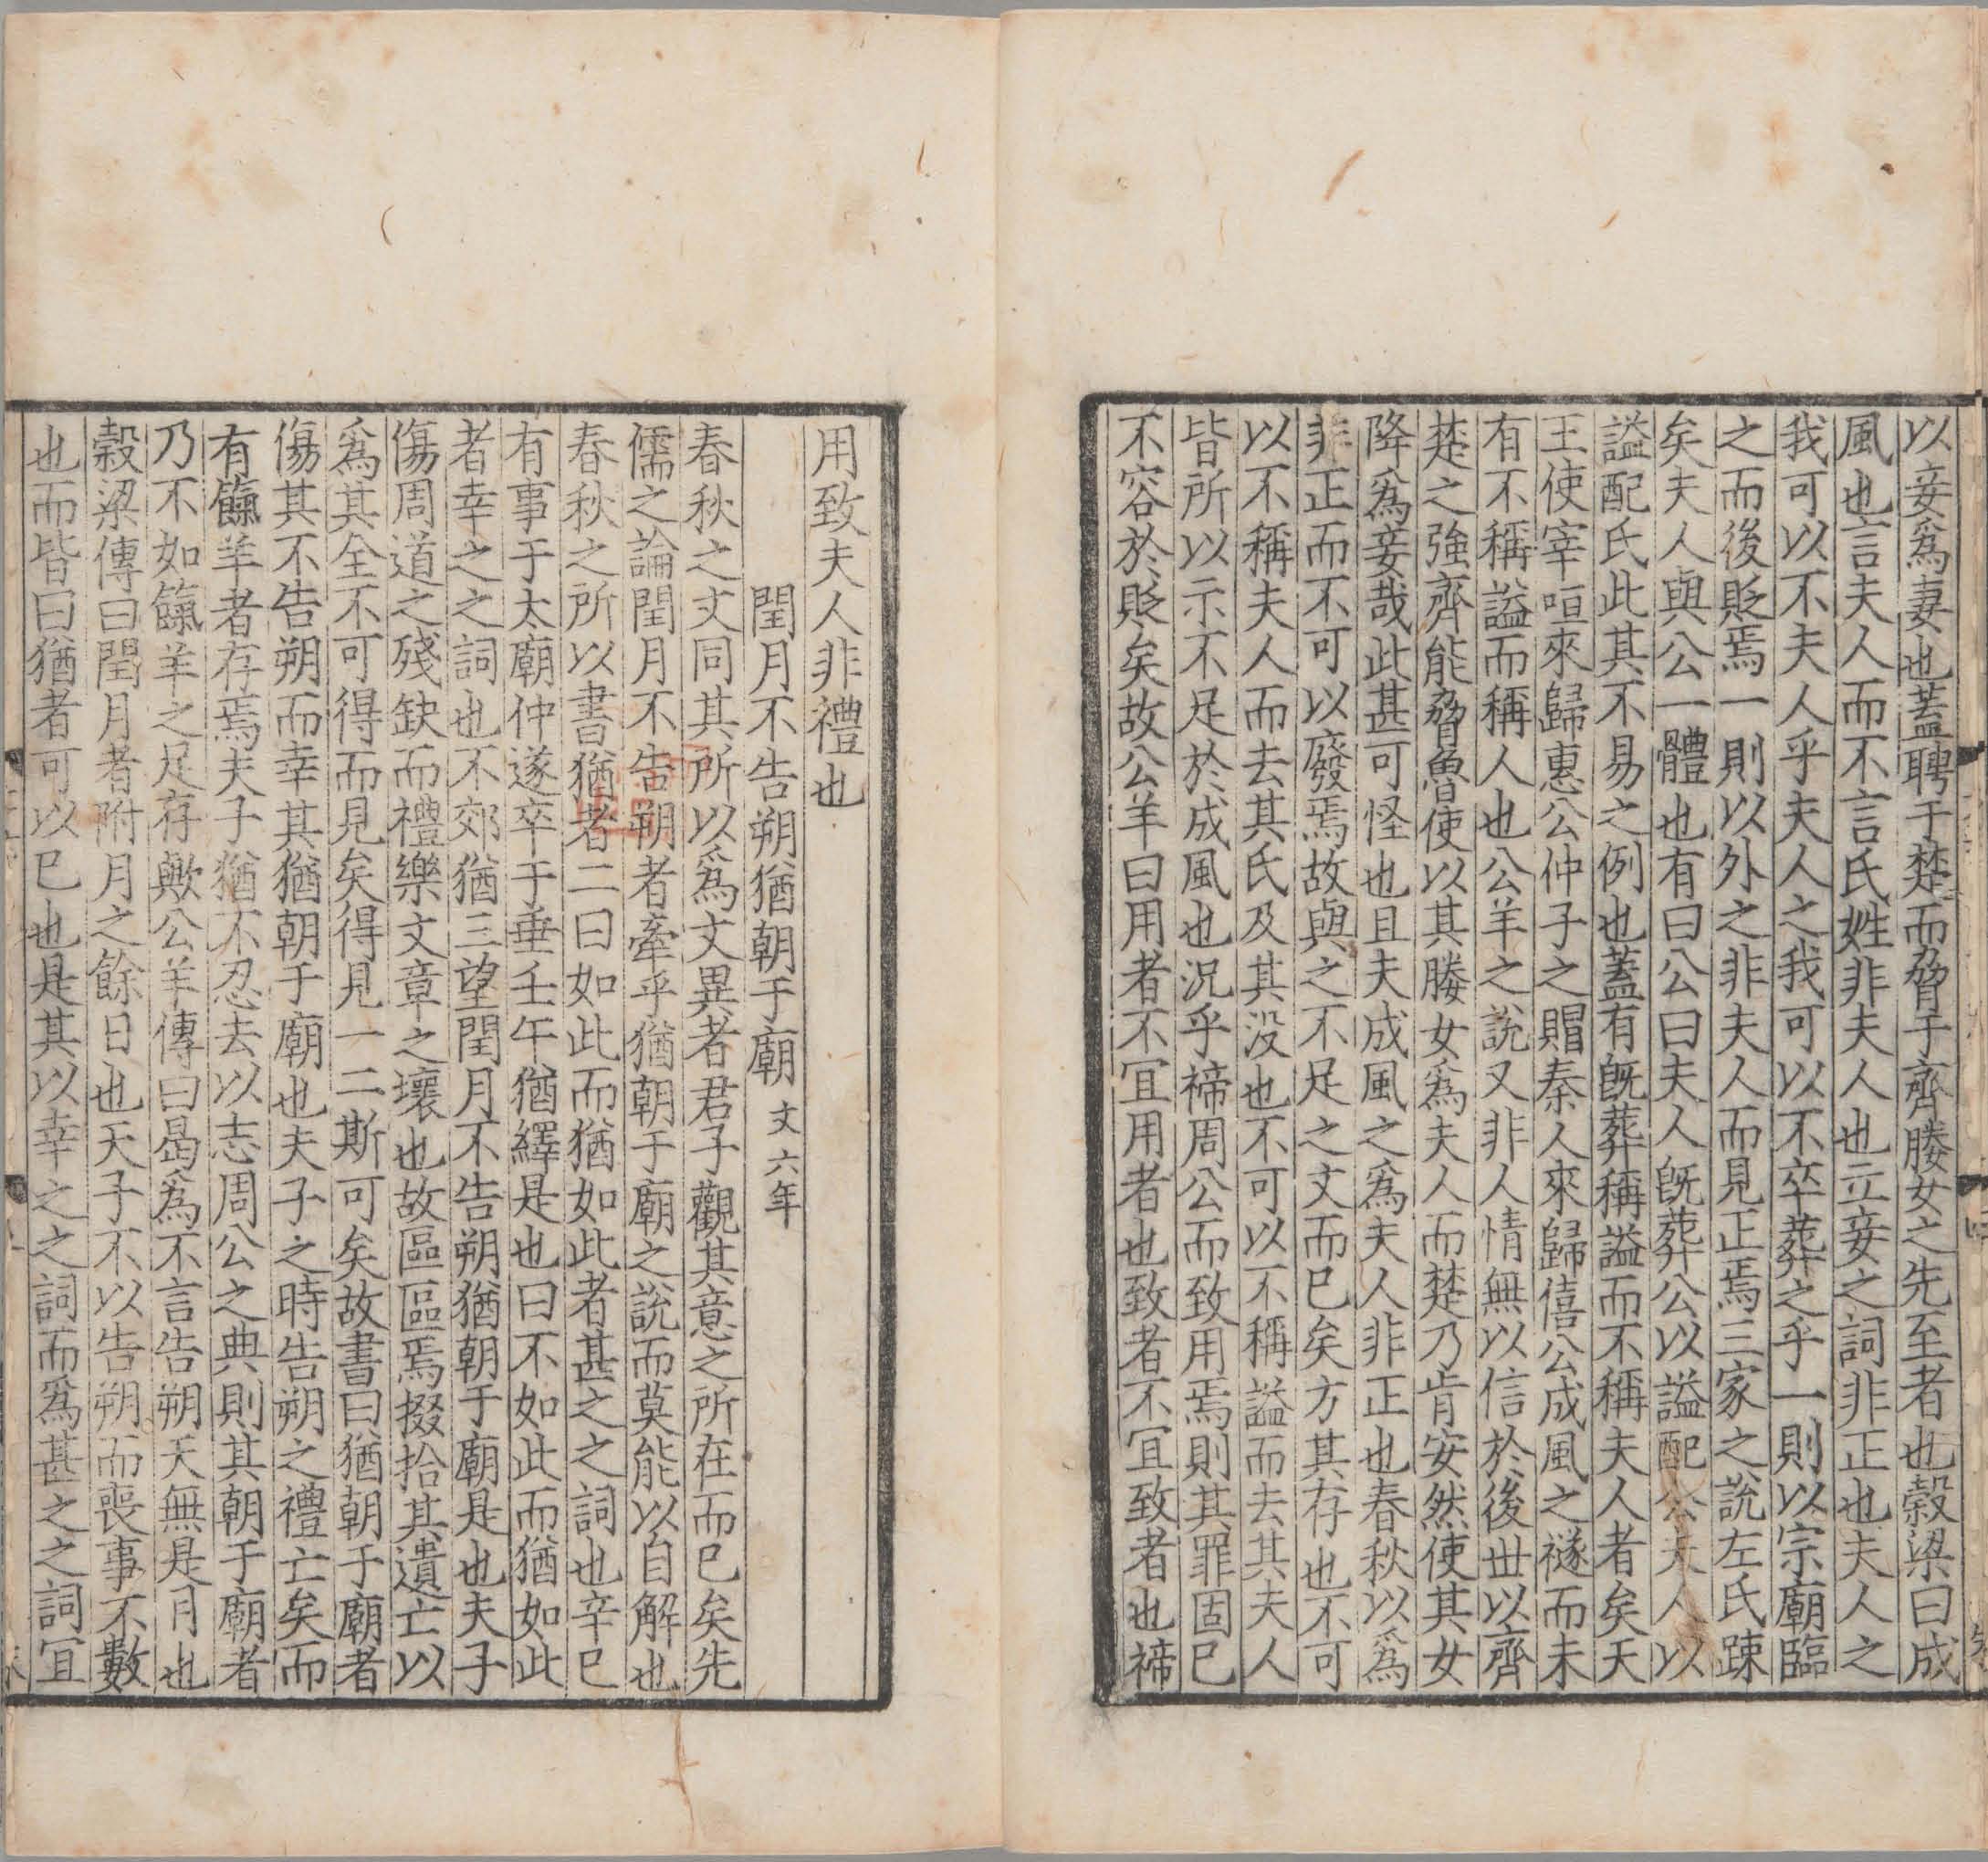 以妾爲妻也蓋聘于楚而脅于齊媵女之先至者也穀梁曰成
風也言夫人而不言氏姓非夫人也立妾之詞非正也夫人之
我可以不夫人乎夫人之我可以不卒葬之乎一則以宗廟臨
之而後貶焉一則以外之非夫人而見正焉三家之說左氏踈
矣夫人與公一體也有曰公曰夫人旣葬公以謚配公夫人以
謚配氏此其不易之例也蓋有旣葬稱謚而不稱夫人者矣天
王使宰咺來歸惠公仲子之賵秦人來歸僖公成風之禭而未
有不稱謚而稱人也公羊之說又非人情無以信於後世以齊
楚之強齊能脅魯使以其媵女爲夫人而楚乃肯安然使其女
降爲妾哉此甚可怪也且夫成風之爲夫人非正也春秋以爲
非正而不可以廢焉故與之不足之文而已矣方其存也不可
以不稱夫人而去其氏及其没也不可以不稱謚而去其夫人
皆所以示不足於成風也況乎禘周公而致用焉則其罪固已
不容於貶矣故公羊曰用者不宜用者也致者不宜致者也禘
用致夫人非禮也
閏月不告朔猶朝于廟 文六年
春秋之文同其所以爲文異者君子觀其意之所在而已矣先
儒之論閏月不告朔者牽乎猶朝于廟之說而莫能以自解也
春秋之所以書猶者二曰如此而猶如此者甚之之詞也辛巳
有事于太廟仲遂卒于垂壬午猶繹是也曰不如此而猶如此
者幸之之詞也不郊猶三望閏月不告朔猶朝于廟是也夫子
傷周道之殘缺而禮樂文章之壞也故區區焉掇拾其遺亡以
爲其全不可得而見矣得見一二斯可矣故書曰猶朝于廟者
傷其不告朔而幸其猶朝于廟也夫子之時告朔之禮亡矣而
有餼羊者存焉夫子猶不忍去以志周公之典則其朝于廟者
乃不如餼羊之足存歟公羊傳曰曷爲不言告朔天無是月也
穀梁傳曰閏月者附月之餘日也天子不以告朔而喪事不數
也而皆曰猶者可以已也是其以幸之之詞而爲甚之之詞宜